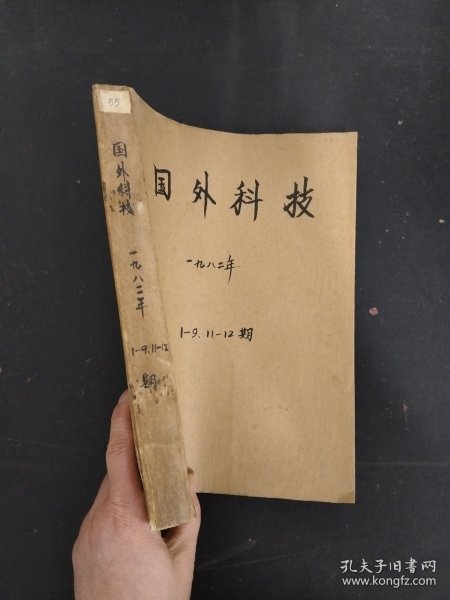 55
国外科技
一九八二年
1-9.11-12
期
国外科技
一九八二年
1-9.11-12期
孔夫子旧书网
www.kongfz.com